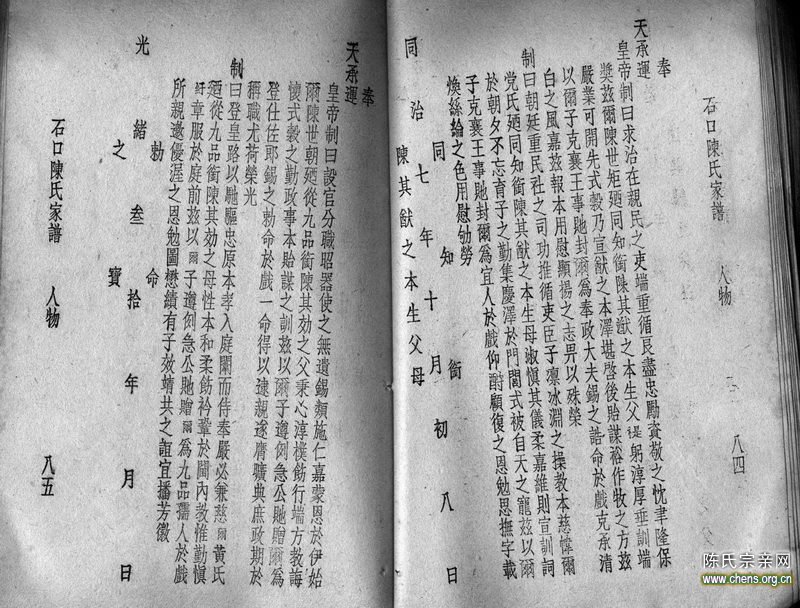 石口陳氏家譜 人物 八四
奉
天承運
皇帝制曰求治在親民之吏端重循良盡忠勵資敬之忱聿隆保
奬茲爾陳世矩廼同知銜陳其猷之本生父提躬淳厚垂訓端
嚴業可開先式穀乃宣猷之本澤堪啓後貽謀裕作牧之方茲
以爾子克襄王事貤封爾爲奉政大夫錫之誥命於戲克承清
白之風嘉茲報本用慰顯揚之志畀以殊榮
制曰朝廷重民社之司功推循吏臣子凜冰淵之操教本慈幃爾
党氏廼同知銜陳其猷之本生母淑慎其儀柔嘉維則宣訓詞
於朝夕不忘育子之勤集慶澤於門閭式被自天之寵茲以爾
子克襄王事貤封爾爲宜人於戲仰酬顧復之恩勉思撫字載
煥絲綸之色用慰劬勞
同治七年十月初八日
同知銜
陳其猷之本生父母
奉
天承運
皇帝制曰設官分職昭器使之無遺錫類施仁嘉蒙恩於伊始
爾陳世朝廼從九品銜陳其效之父秉心淳樸飭行端方教誨
懷式穀之勤政事本貽謀之訓茲以爾子遵倒急公貤贈爾爲
登仕佐郎錫之勅命於戲一命得以逮親遂膺曠典庶政期於
稱職尤荷榮光
制曰登皇路以馳驅忠原本孝入庭闈而侍奉嚴必兼慈爾黃氏
廼從九品銜陳其効之母性本和柔飭衿鞶於閫內教惟勤慎
著章服於庭前茲以爾子遵倒急公貤贈爾爲九品孺人於戲
所親邀優渥之恩勉圖懋績有子效靖共之誼宜播芳徽
光緒叁拾年月日
勅命
之寶
石口陳氏家譜 人物 八五
陈氏宗亲网
www.chens.org.cn